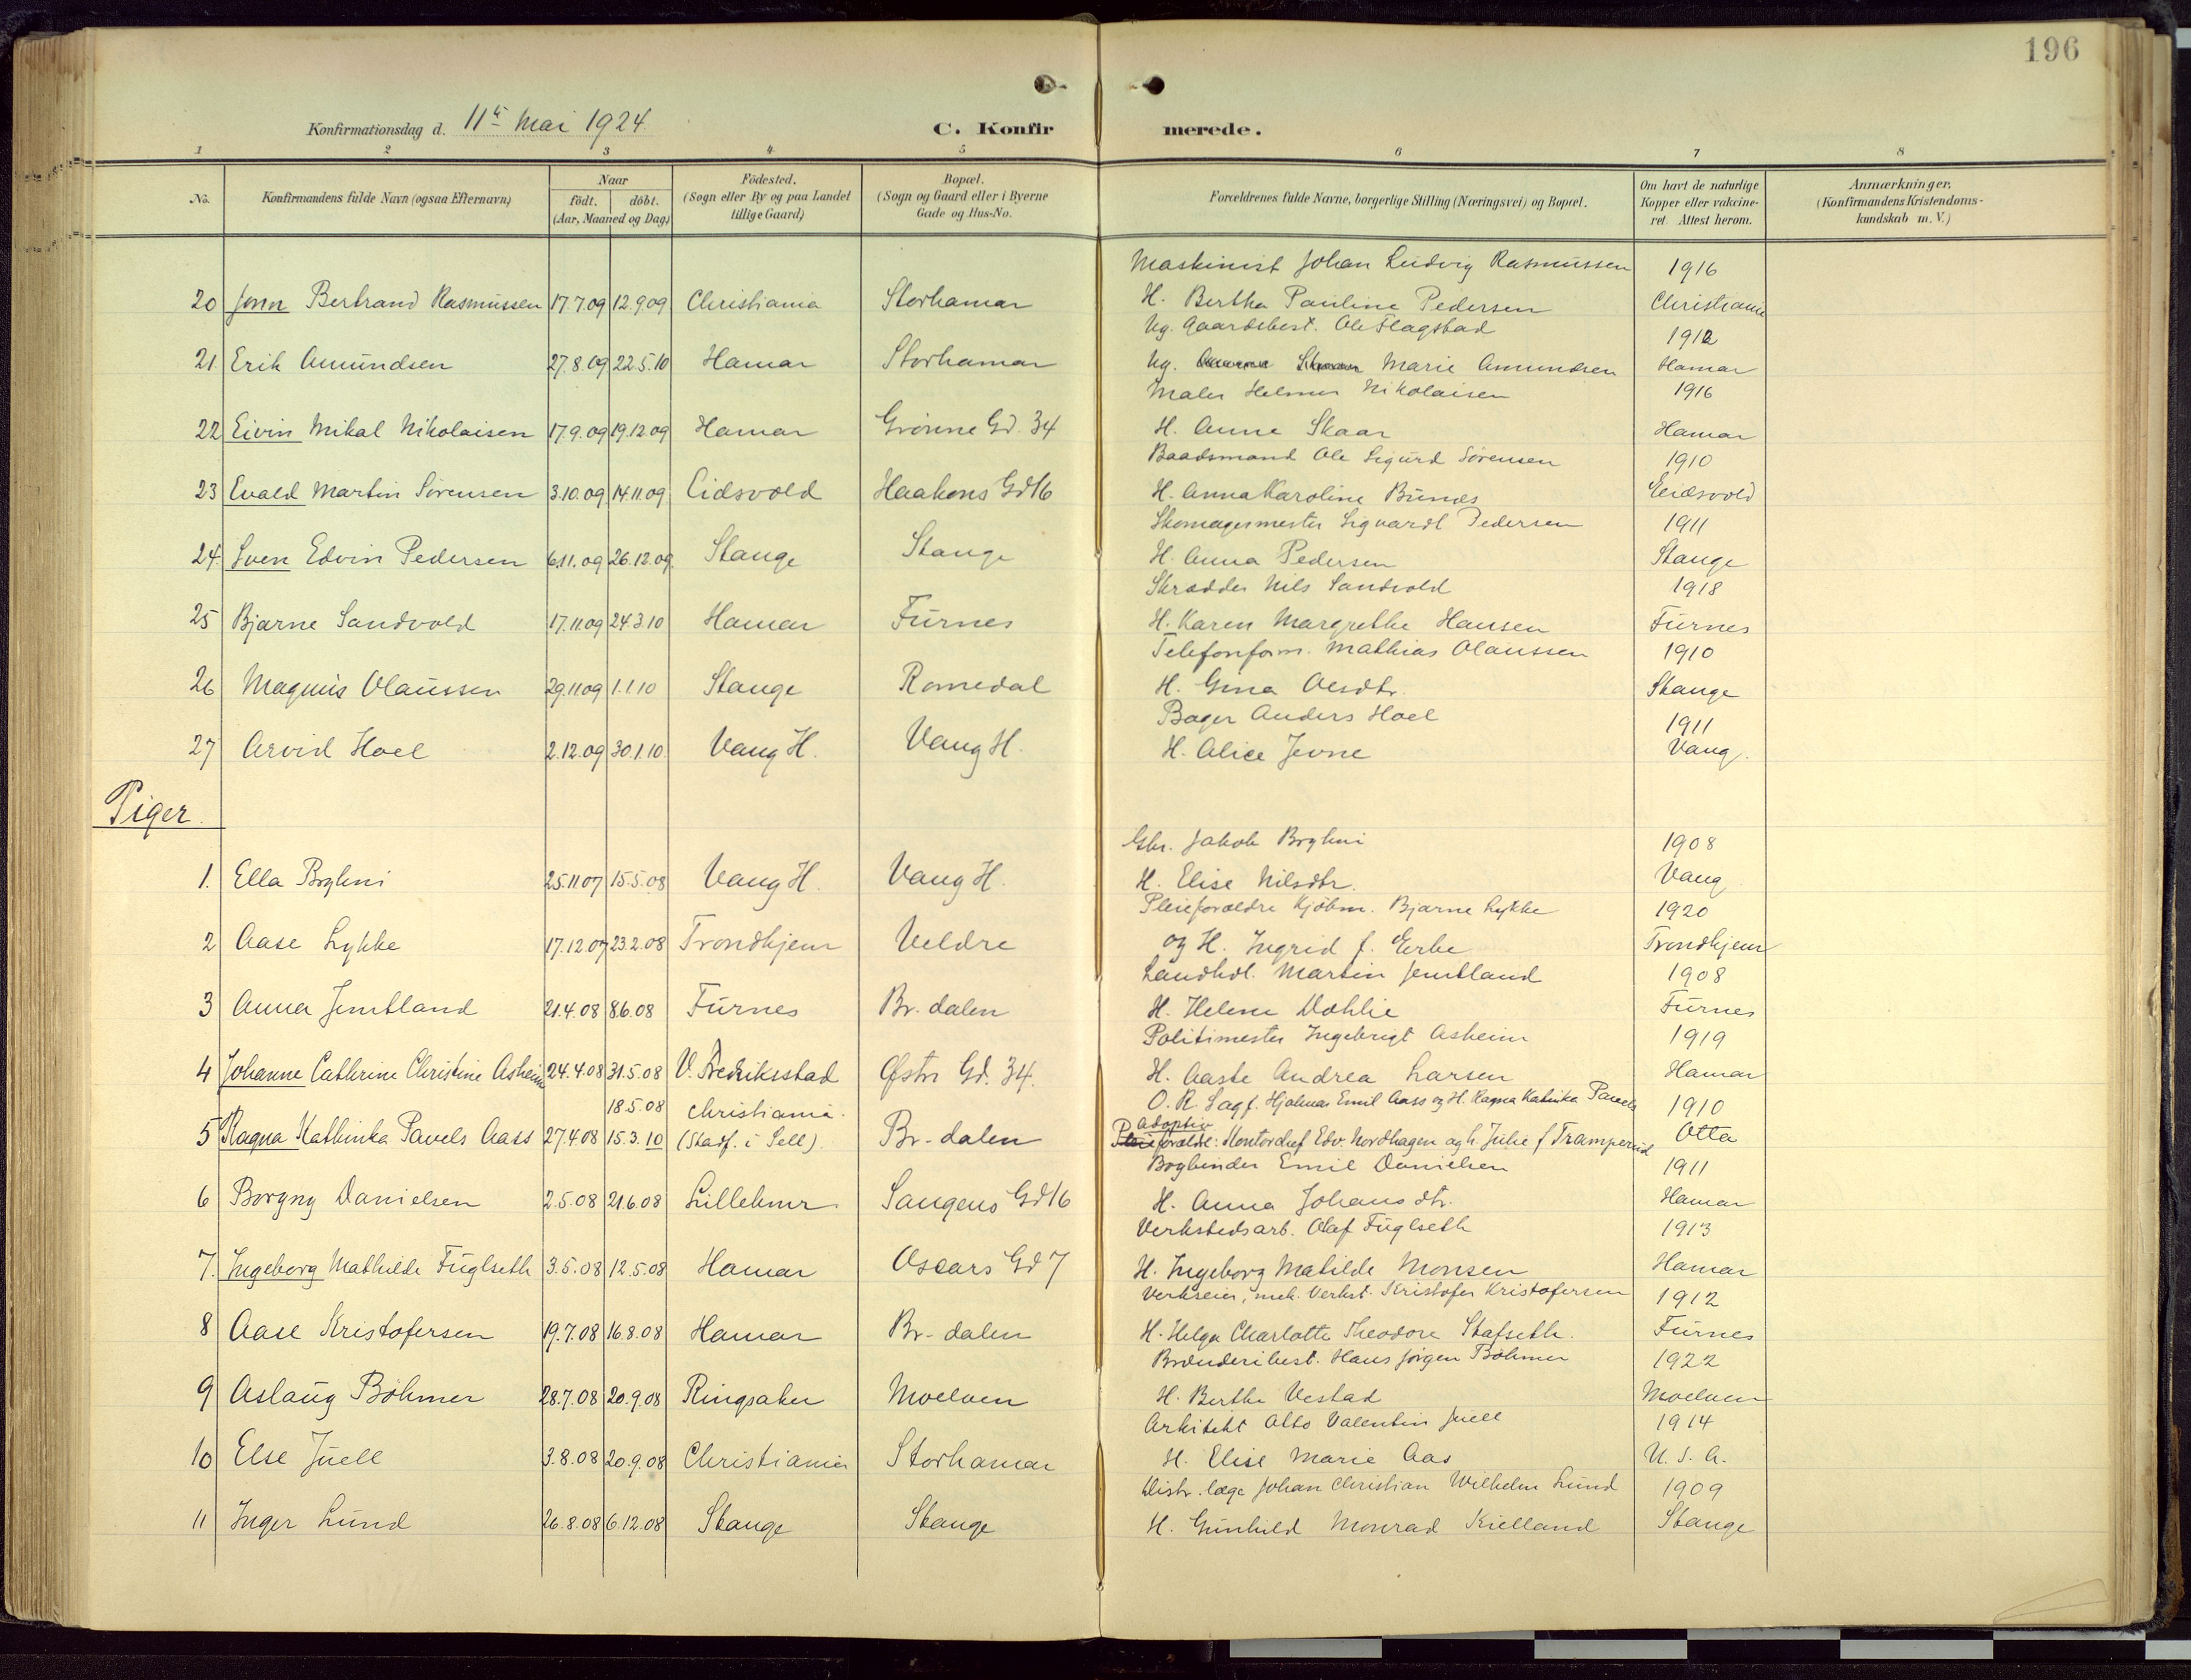 196
Konfirmationsdag d. 11te Mai 1924.
C. Konfirmerede.
1 2 3 4 5 6 7 8
No. Konfirmandens fulde Navn (ogsaa Efternavn) Naar født. døbt. (Aar, Maaned og Dag) Fødested. (Sogn eller By og paa Landet tillige Gaard) Bopæl. (Sogn og Gaard eller i Byerne Gade og Hus-No. Forældrenes fulde Navne, borgerlige Stilling (Næringsvei) og Bopæl. Om havt de naturlige Kopper eller vakcineret. Attest herom. Anmærkninger, (Konfirmandens Kristendomskundskab m. V.)
Maskinist Johan Ludvig Rasmussen 1916
20 John Bertrand Rasmussen 17.7.09 12.9.09 Christiania Storhamar H. Bertha Pauline Pedersen Christiania
Ug. Gaardsbest. Ole Flagstad 1912
21. Erik Amundsen 27.8.09 22.5.10 Hamar Storhamar Ug. Marie Amundsen Hamar
Maler Helmer Nikolaisen 1916
22 Eivin Mikal Nikolaisen 17.9.09 19.12.09 Hamar Grønne Gd. 34 H. Anne Skaar Hamar
Baadsmand Ole Sigurd Sørensen 1910
23 Evald Martin Sørensen 3.10.09 14.11.09 Eidsvold Haakons Gd 16 H. Anna Karoline Bundes Eidsvold
Skomagermester Sigvardt Pedersen 1911
24. Sven Edvin Pedersen 6.11.09 26.12.09. Stange Stange H. Anna Pedersen Stange
Skrædder Nils Sandvold 1918
25 Bjarne Sandvold 17.11.09 24.3.10 Hamar Furnes H. Karen Margrethe Hansen Furnes
Telefonform. Mathias Olaussen 1910
26 Magnus Olaussen 29.11.09 1.1.10 Stange Romedal H. Gina Olsdtr. Stange
Bager Anders Hoel 1911
27 Arvid Hoel 2.12.09 30.1.10. Vang H. Vang H. H. Alice Jevne Vang.
Piger.
Gbr. Jakob Bryhni 1908
1. Ella Bryhni 25.11.07 15.5.08 Vang H. Vang H. H. Elise Nilsdtr. Vang
Pleieforældre Kjøbm. Bjarne Lykke 1920
2 Aase Lykke 17.12.07 23.2.08 Trondhjem Veldre og H. Ingrid f. Erbe Trondhjem
Landhdl. Martin Jemtland 1908
3 Anna Jemtland 21.4.08 8.6.08 Furnes Br. dalen H. Helene Dæhlie Furnes
Politimester Ingebrigt Asheim 1919
4 Johanne Cathrine Christine Asheim 24.4.08 31.5.08 V. Fredriksstad Østre Gd. 34. H. Aaste Andrea Larsen Hamar
18.5.08 Christiania. O. R. Sagf. Hjalmar Emil Aass og H. Ragna Katinka Pavels 1910
5 Ragna Kathinka Pavels Aass 27.4.08 15.3.10 (Stadf. i Sell). Br-dalen Adoptiv Pleieforældre: Kontorchef Edv. Nordhagen og h. Julie f Tramperud Otta
Bogbinder Emil Danielsen 1911
6 Borgny Danielsen 2.5.08 21.6.08 Lillehmr. Sangens Gd 16 H. Anna Johansdtr. Hamar
Verkstedsarb. Olaf Fuglseth 1913
7. Ingeborg Mathilde Fuglseth 3.5.08 12.5.08 Hamar Oscars Gd 7 H. Ingeborg Matilde Monsen Hamar
Verkseier, mek. Verkst. Kristofer Kristofersen 1912
8 Aase Kristofersen 19.7.08 16.8.08 Hamar Br-dalen H. Helga Charlotte Theodore Stafseth. Furnes
Brænderibest. Hans Jørgen Bøhmer 1922
9 Aslaug Bøhmer 28.7.08 20.9.08 Ringsaker Moelven H. Berthe Vestad Moelven
Arkitekt Otto Valentin Juell 1914
10 Else Juell 3.8.08 20.9.08 Christiania Storhamar H. Elise Marie Aas U. S. A.
Distr. læge Johan Christian Wilhelm Lund 1909
11 Inger Lund 26.8.08 6.12.08 Stange Stange H. Gunhild Monrad Kielland Stange